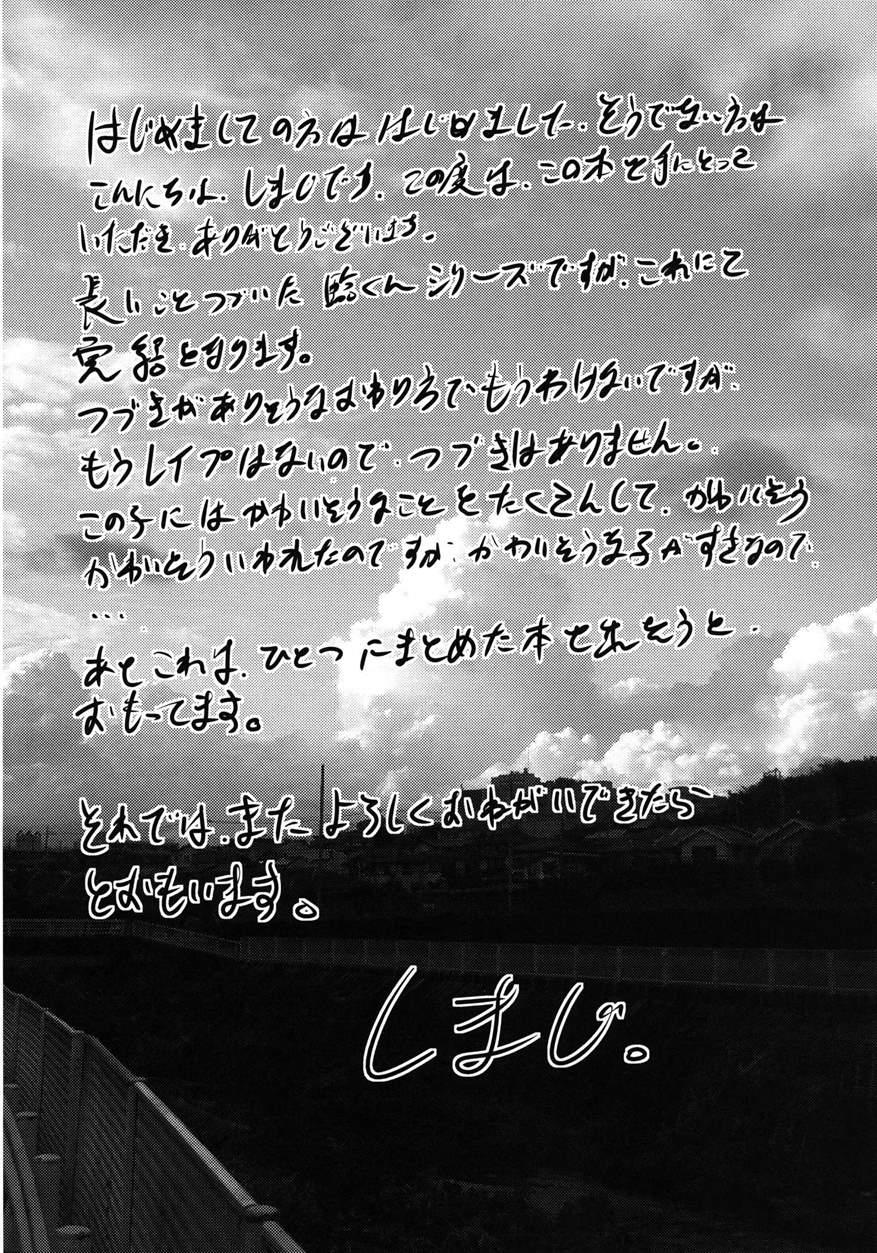 はじめましての方ははじめまして、そうでない方は
こんにちは、しまじです。この度は、この本を手にとって
いただき、ありがとうございます。
長いことつづいた 臨くんシリーズですが、これにて
完結となります。
つづきがありそうなおわり方でもうわけないですが、
もうレイプはないので、つづきはありません。
この子にはかわいそうなことをたくさんして、かわいそう
かわいそういわれたのですが、かわいそうな子がすきなので、
...
あとこれは、ひとつにまとめた本を出そうと、
おもってます。
それでは、またよろしくおねがいできたら
とおもいます。
しまじ。